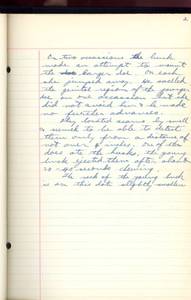 2.
On two occasions the buck
made an attempt to mount
the larger doe. On each
she jumped away. He smelled
the genital regions of the younger
doe on one occasion but she
did not avoid him & he made
no further advances.
They located acorns by smell
& seemed to be able to detect
them only from a distance of
not over 6 inches. One of the
does ate the husks, the young
buck ejected them after about
30-40 seconds chewing.
The neck of the yearling buck
is on this date slightly swollen.